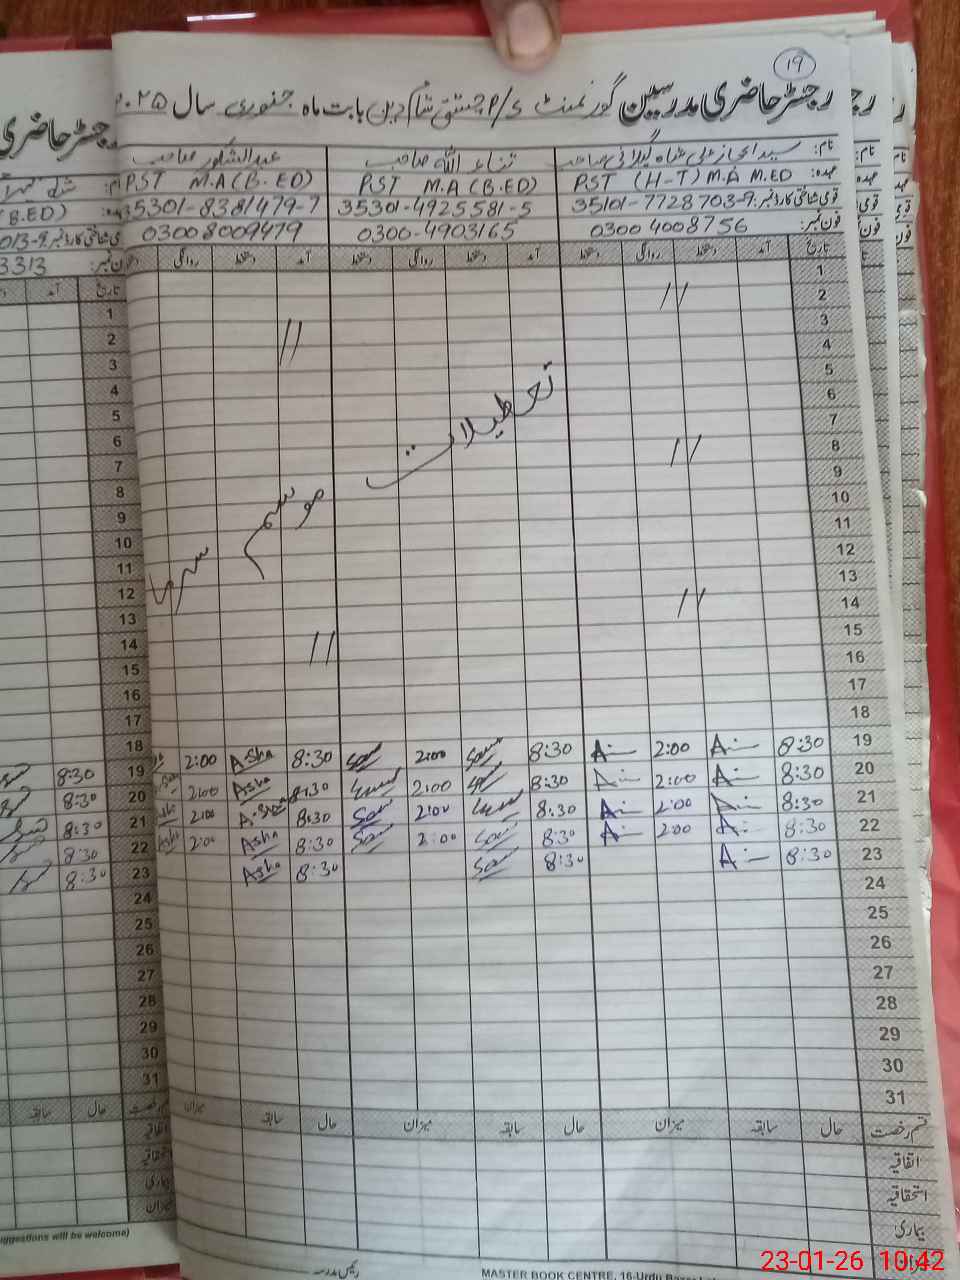 ۱۹
رجسٹر حاضری مدرسین گورنمنٹ P/S چشتی شام دین بابت ماہ جنوری سال ۲۰۲۵
نام: سید اعجاز علی شاہ گیلانی صاحب ثناء اللہ صاحب عبدالشکور صاحب
عہدہ: PST (H-T) M.A M.ED PST M.A (B.ED) PST M.A (B.ED)
قومی شناختی کارڈ نمبر: 35101-7728703-9 35301-4925581-5 35301-8381479-7
فون نمبر: 0300 4008756 0300-4903165 03008009479
تاریخ آمد دستخط روانگی دستخط آمد دستخط روانگی دستخط آمد دستخط روانگی
1
2
3
4
5
6
7
8
9
10
11
12
13
14
15
16
17
18
تعطیلات موسم سرما
19 8:30 2:00 8:30 2:00 8:30 Asha 2:00
20 8:30 2:00 8:30 2:00 8:30 Asha 2:00
21 8:30 2:00 8:30 2:00 8:30 2:00
22 8:30 2:00 8:30 2:00 8:30 Asha 2:00 Asha
23 8:30 8:30 8:30 Asha
24
25
26
27
28
29
30
31
قسم رخصت حال سابقہ میزان حال سابقہ میزان حال سابقہ میزان
اتفاقیہ
استحقاقیہ
بیماری
میزان
رئیس مدرسہ
MASTER BOOK CENTRE, 16-Urdu Bazar
(B.ED)
013-9
3313
فون نمبر:
تاریخ آمد
1
2
3
4
5
6
7
8
9
10
11
12
13
14
15
16
17
18
19 8:30
20 8:30
21 8:30
22 8:30
23 8:30
24
25
26
27
28
29
30
31
حال سابقہ
اتفاقیہ
استحقاقیہ
بیماری
میزان
uggestions will be welcome)
23-01-26 10:42